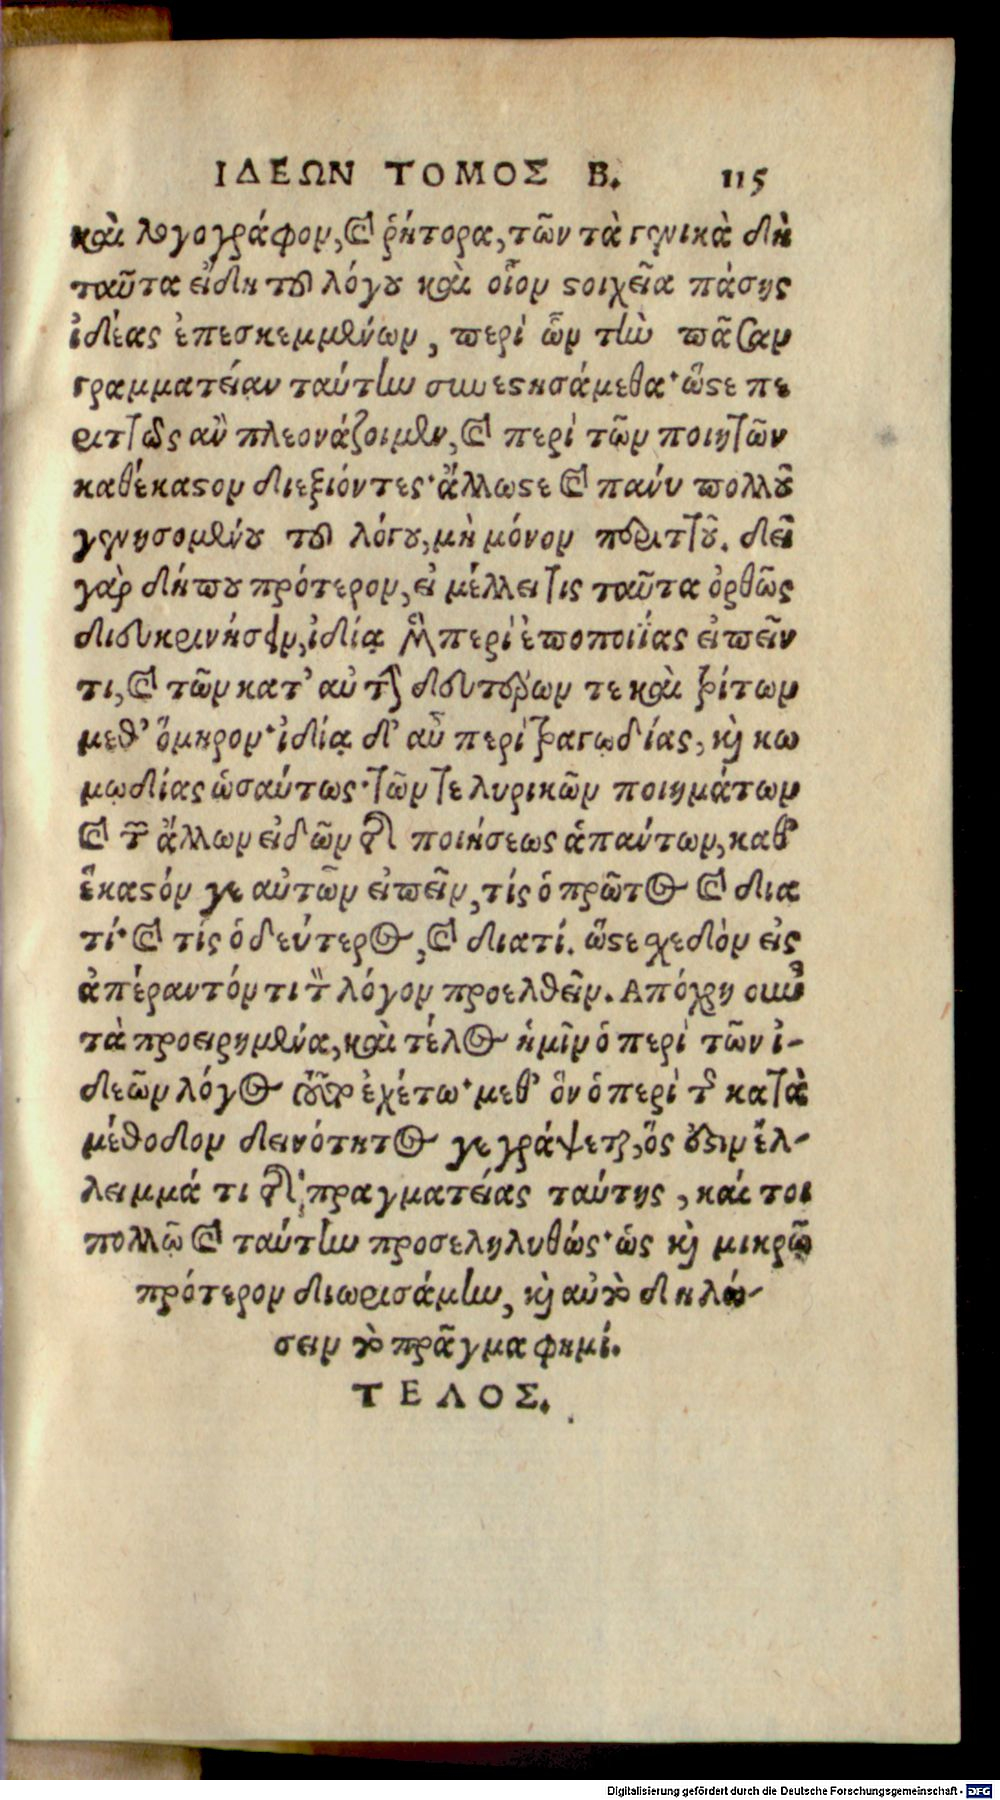 ΙΔΕΩΝ ΤΟΜΟΣ Β. 115
καὶ λογογράφον, καὶ ῥήτορα, τῶν τὰ γενικὰ δὴ
ταῦτα εἴδη τοῦ λόγου καὶ οἷον ϛοιχεῖα πάσης
ἰδέας ἐπεσκεμμένων, περὶ ὧν τὴν πᾶσαν
γραμματείαν ταύτην συνεϛησάμεθα· ὥϛε πε
ριττῶς ἂν πλεονάζοιμεν, καὶ περὶ τῶν ποιητῶν
καθέκαϛον διεξιόντες· ἄλλωϛε καὶ πάνυ πολλοῦ
γενησομένου τοῦ λόγου, μὴ μόνον περιττοῦ. δεῖ
γὰρ δήπου πρότερον, εἰ μέλλει τις ταῦτα ὀρθῶς
διευκρινήσειν, ἰδίᾳ μὲν περὶ ἐποποιΐας εἰπεῖν
τι, καὶ τῶν κατ’ αὐτὴν δευτέρων τε καὶ τρίτων
μεθ’ ὅμηρον· ἰδίᾳ δ’ αὖ περὶ τραγῳδίας, καὶ κω
μῳδίας ὡσαύτως· τῶν τε λυρικῶν ποιημάτων
καὶ τῶν ἄλλων εἰδῶν τῆς ποιήσεως ἁπάντων, καθ’
ἕκαϛόν γε αὐτῶν εἰπεῖν, τίς ὁ πρῶτος καὶ δια
τί· καὶ τίς ὁ δεύτερος, καὶ διατί. ὥϛε σχεδὸν εἰς
ἀπέραντόν τι τὸν λόγον προελθεῖν. Απόχρη οὖν
τὰ προειρημένα, καὶ τέλος ἡμῖν ὁ περὶ τῶν ἰ-
δεῶν λόγος οὗτος ἐχέτω· μεθ’ ὃν ὁ περὶ τῆς κατὰ
μέθοδον δεινότητος γεγράψεται, ὅς οὖϛιν ἔλ-
λειμμά τι τῆς πραγματείας ταύτης, καί τοι
πολλῷ καὶ ταύτην προσεληλυθώς· ὡς καὶ μικρῷ
πρότερον διωρισάμην, καὶ αὐτὸ δηλώ-
σειν τὸ πρᾶγμα φημί.
ΤΕΛΟΣ.
Digitalisierung gefördert durch die Deutsche Forschungsgemeinschaft - DFG